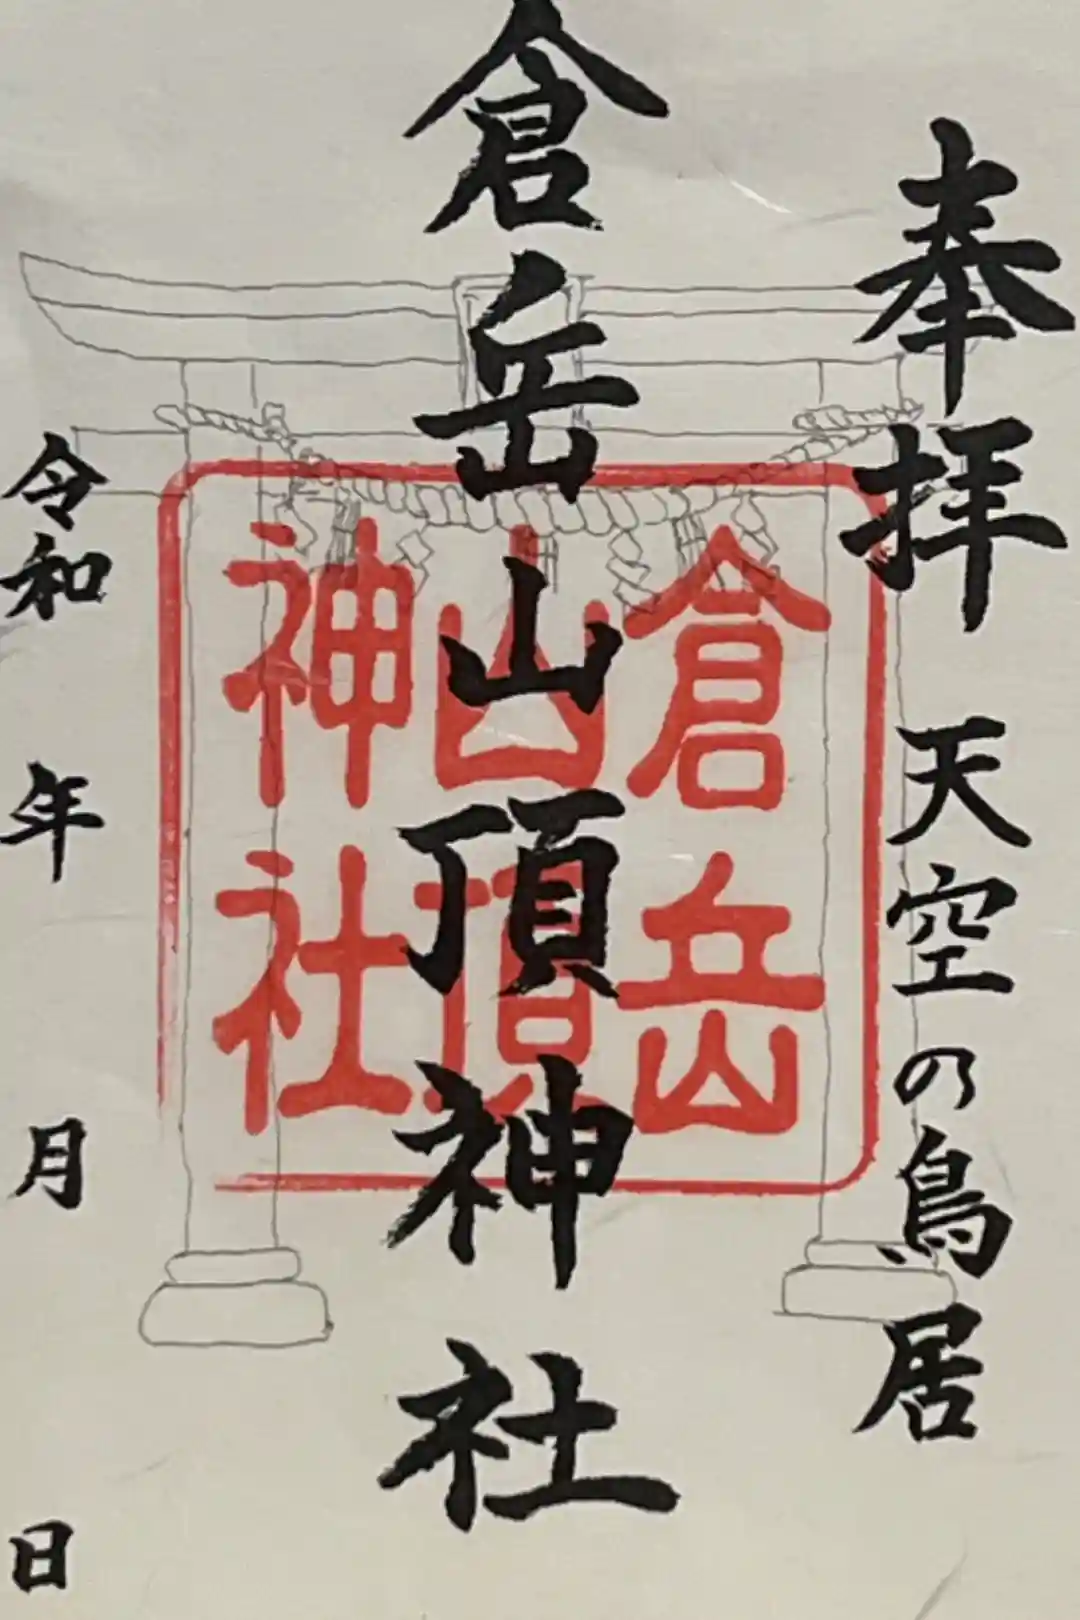 奉拝 天空の鳥居
倉岳山頂神社
令和 年 月 日
倉岳
山頂
神社